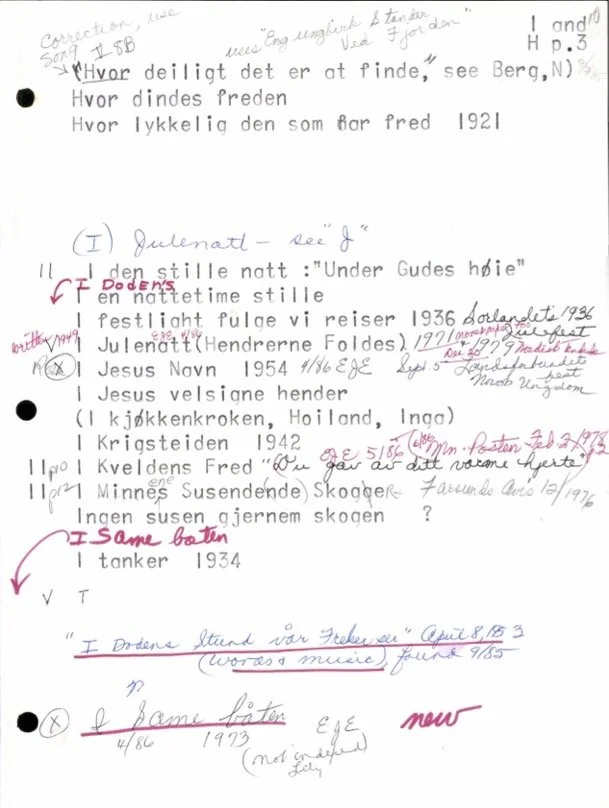 Correction, use
Song II 8B
uses "Eng ungbirk Stander
Ved Fjorden"
I and
H p.3
("Hvor deiligt det er at finde," see Berg,N)
Hvor dindes freden
Hvor lykkelig den som har fred 1921
(I) Julenatt - see "J"
11 I den stille natt :"Under Gudes høie"
I DODEN'S
I en nattetime stille
I festlight fulge vi reiser 1936 Sorlandets 1936
written 1949 I Julenatt(Hendrerne Foldes) EJE 4/86 1971 Julefest
Dec. 20 1979
(X) I Jesus Navn 1954 4/86 EJE Sept. 5 Landsforbundet
fest
Norsk Ungdom
I Jesus velsigne hender
(I kjøkkenkroken, Hoiland, Inga)
I Krigsteiden 1942
EJE 5/86 Mn. Posten Feb. 2/1978
11 p10 I Kveldens Fred "Du gav av ditt varme hjerte"
11 p12 I Minnes Susende(nde) Skogger Farsunds Avis 12/1976
ene
Ingen susen gjernem skogen ?
I Same baten
I tanker 1934
V T
"I Dodens Stund vår Frelser ser" April 8, 1953
(words + music), found 9/85
(X) I Same båten EJE new
4/86 1973
(not